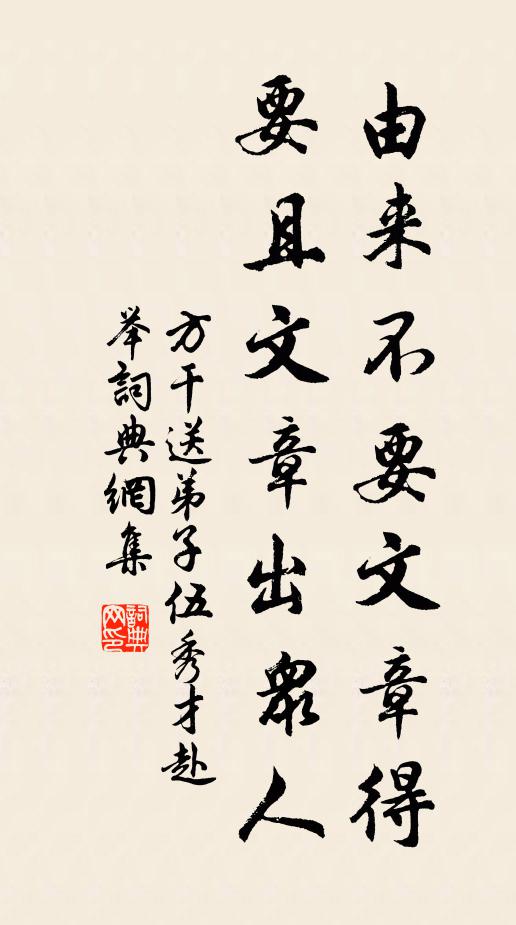 由来不要文章得
要且文章出眾人
方干送弟子伍秀才赴
举詞典網集
詞典
网印